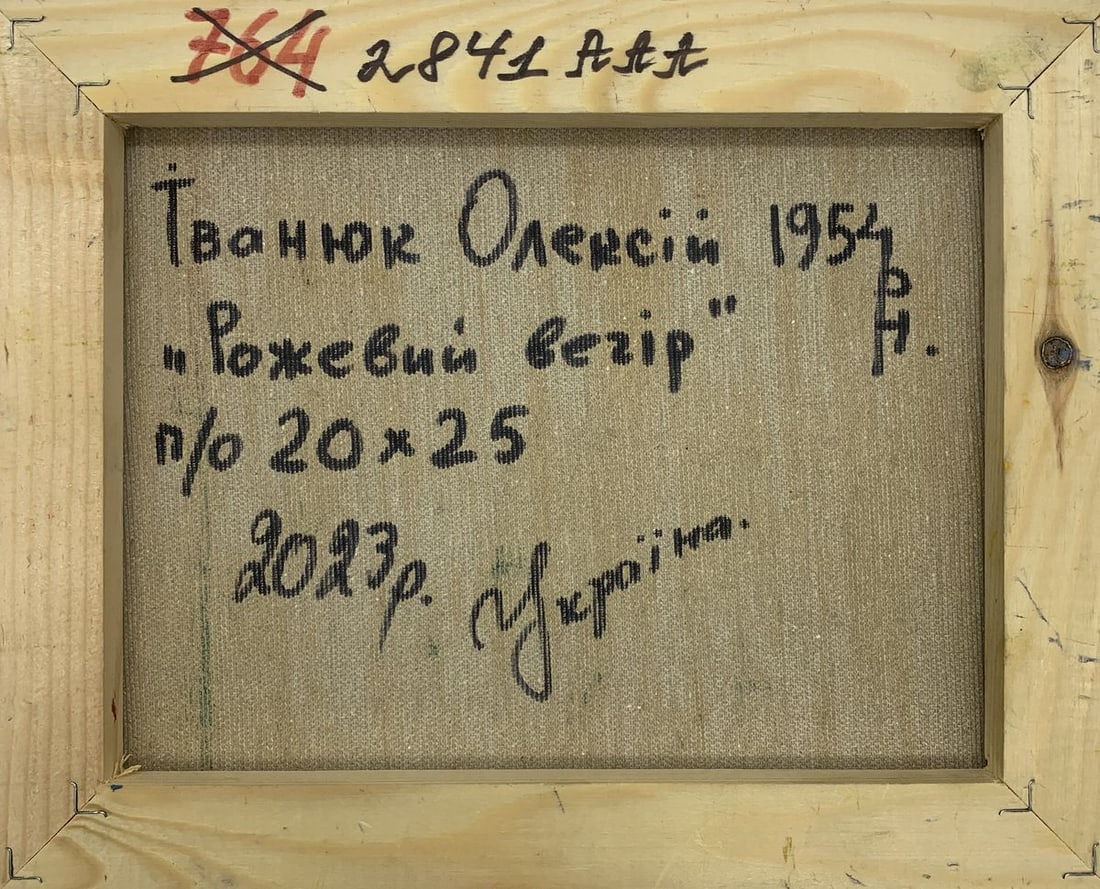 764 2841 ААА
Їванюк Олексій 1954
р
н.
„Рожевий вечір"
п/о 20×25
2023р. Україна.